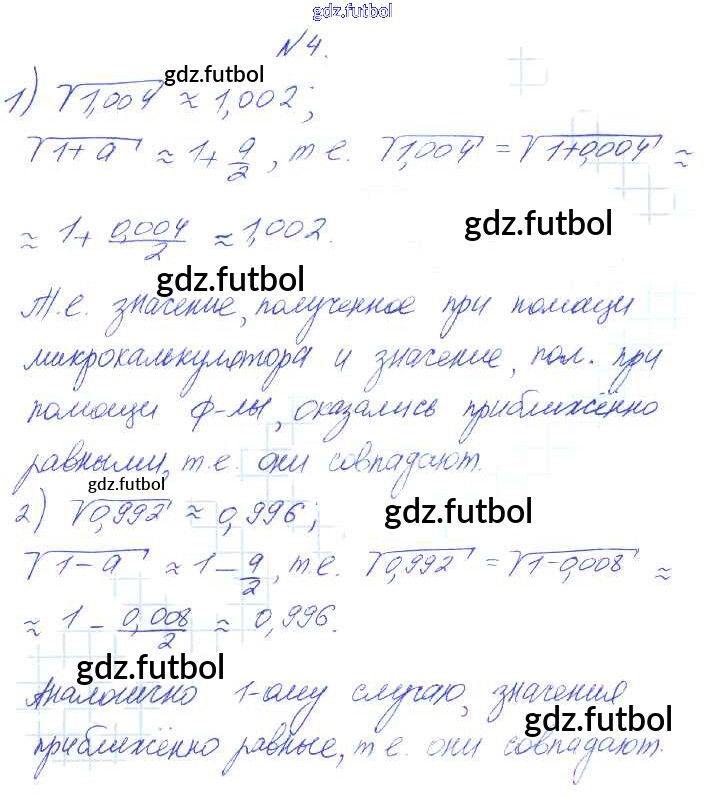 gdz.futbol
№4.
gdz.futbol
1) √1,004 ≈ 1,002;
√1+a ≈ 1+a/2, т.е. √1,004 = √1+0,004 ≈
gdz.futbol
≈ 1+0,004/2 ≈ 1,002.
gdz.futbol
Т.е. значение, полученное при помощи
микрокалькулятора и значение, пол. при
помощи ф-лы, оказались приближённо
равными, т.е. они совпадают.
gdz.futbol
2) √0,992 ≈ 0,996;
gdz.futbol
√1-a ≈ 1-a/2, т.е. √0,992 = √1-0,008 ≈
≈ 1-0,008/2 ≈ 0,996.
gdz.futbol
Аналогично 1-ому случаю, значения
gdz.futbol
приближённо равные, т.е. они совпадают.